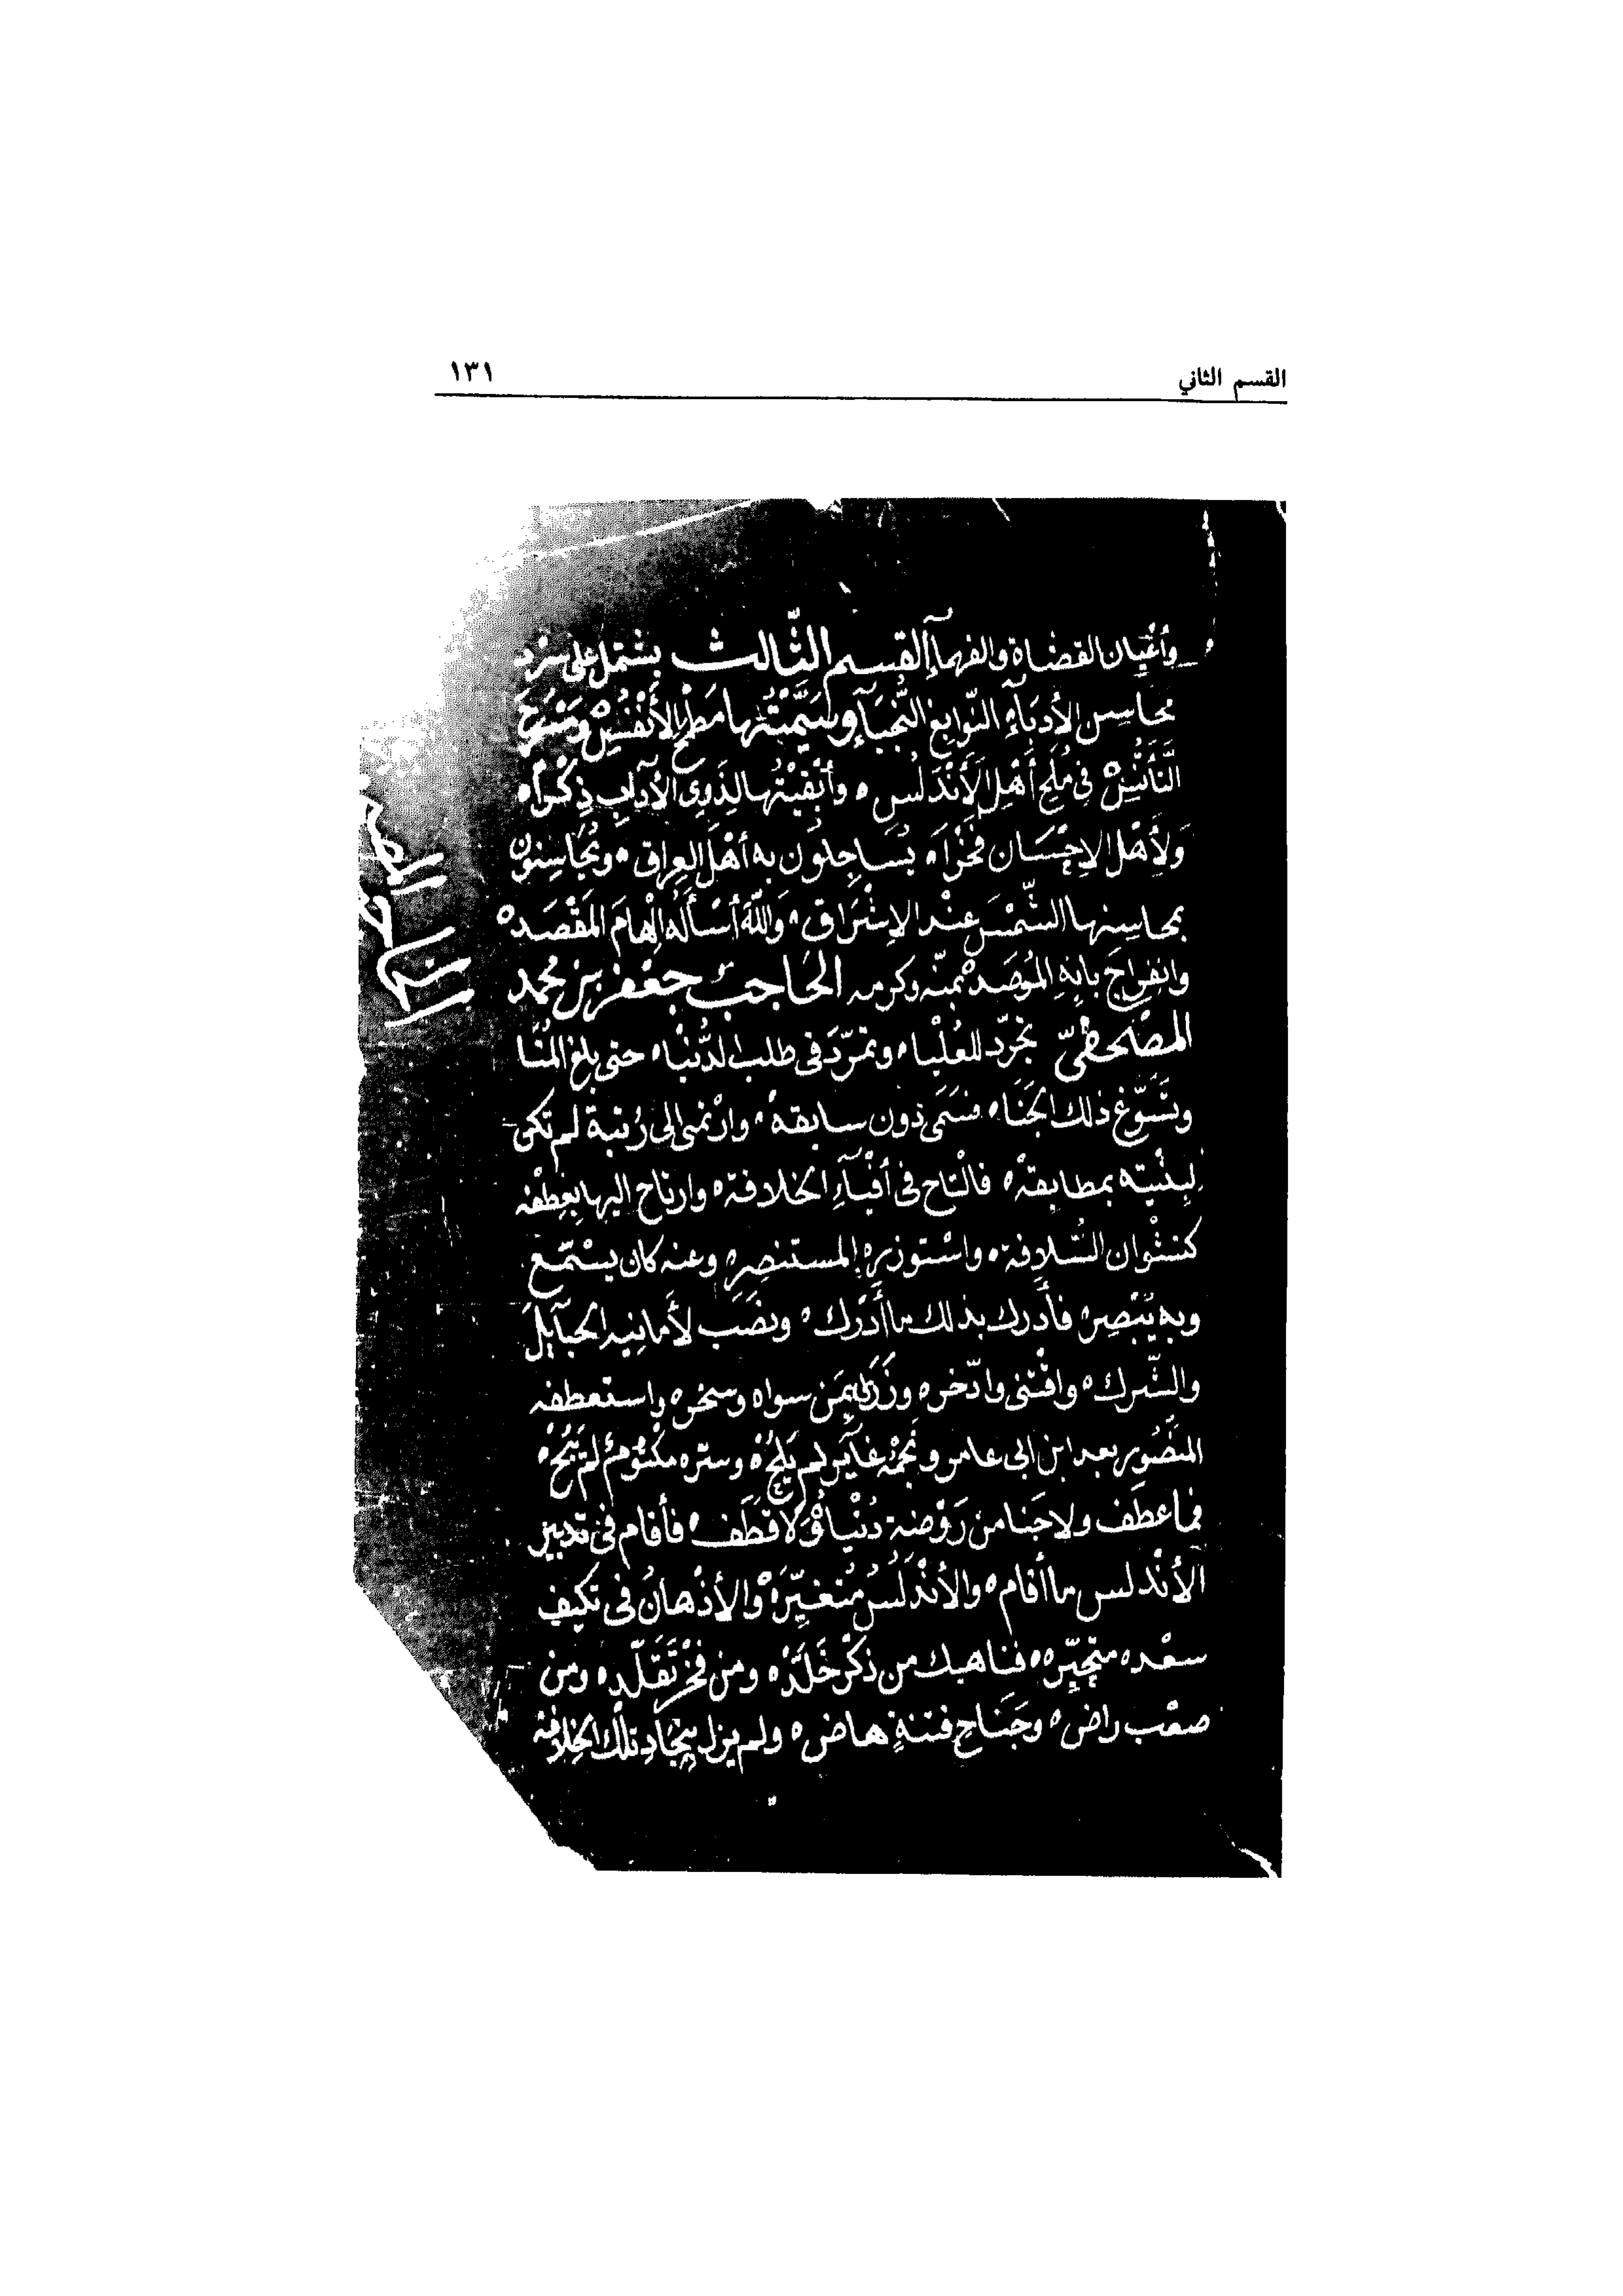 القسم الثاني
١٣١
وأعْيان القضاة والفهمآءِ القسم الثّالث يشتمل على سرد
محاسن الأدبَآءِ النّوابغ النُّجبَآءِ وسَمَّيْتُها مَطمح الأَنْفُسْ ومَسْرَح
التَّأَنُّسْ فى مُلَح أَهْل الأَنْدَلُس ٥ وأبْقَيْتُها لذَوِى الآداب ذِكْراً ٥
ولأَهْل الاِحْسَان فَخْراً ٥ يُسَاجلُون به أَهْل العِراق ٥ ويُحَاسِنون
بمحاسِنها الشّمْسَ عنْد الاِشْرَاق ٥ واللّهَ أسْأَلُه اِلْهامَ المَقْصَدْ ٥
وانفراجَ بابِهِ المُوصَدْ بمنّه وكرمه الحَاجبُ جعْفر بن محمد
المصْحفىّ تجرّد للعُلْيا ٥ وتمرّدَ فى طلب الدُّنْيا ٥ حتى بلغ المُنَا
وتَسَوّغ ذلك الجَنَا ٥ فسَمَى دُون سابقهْ ٥ وارْتمى الى رُتبة لم تكن
لبِنْيَته بمطابقهْ ٥ فالْتاح فى أَفْيَآءِ الخلافة ٥ وارتاح اليها بعِطفه
كنشْوان السُّلافة ٥ واسْتوزره المستنصِر ٥ وعنه كان يسْتمع
وبه يُبْصِر ٥ فأَدرك بذلك ما أَدْرك ٥ ونصَب لأَمانِيه الحبَآيل
والشّرك ٥ واقْتنى وادّخر ٥ وزَرَى بمَن سواه وسخر ٥ واستعطفه
المنْصُور بعد ابن ابى عامر ونجْمُه غآير لم يَلُحْ ٥ وسرّه مكْتُومٌ لم يَبُحْ ٥
فما عطَف ولا جَنا من رَوْضة دُنْياهُ ولا قطَف ٥ فأقام فى تدبير
الأنْدلس ما أقام ٥ والأنْدَلُسُ مُتغيّرَهْ والأذْهانُ فى تكيف
سعْده متحيّره ٥ فناهيك من ذكْر خَلَّدْ ٥ ومن فخْر تَقَلّد ٥ ومن
صعْب راض ٥ وجَنَاح فتنةٍ هاض ٥ ولم يزل بِنجَادِ تلك الخلافة